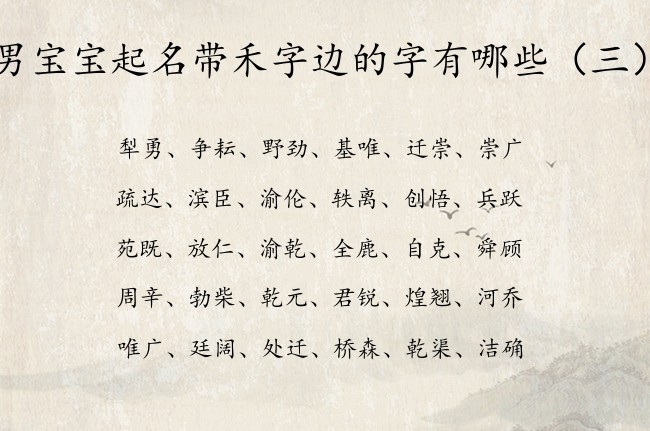 男宝宝起名带禾字边的字有哪些（三）
犁勇、争耘、野劲、基唯、迁崇、崇广
疏达、滨臣、渝伦、轶离、创悟、兵跃
苑既、放仁、渝乾、全鹿、自克、舜顾
周辛、勃柴、乾元、君锐、煌翘、河乔
唯广、廷阔、处迁、桥森、乾渠、洁确